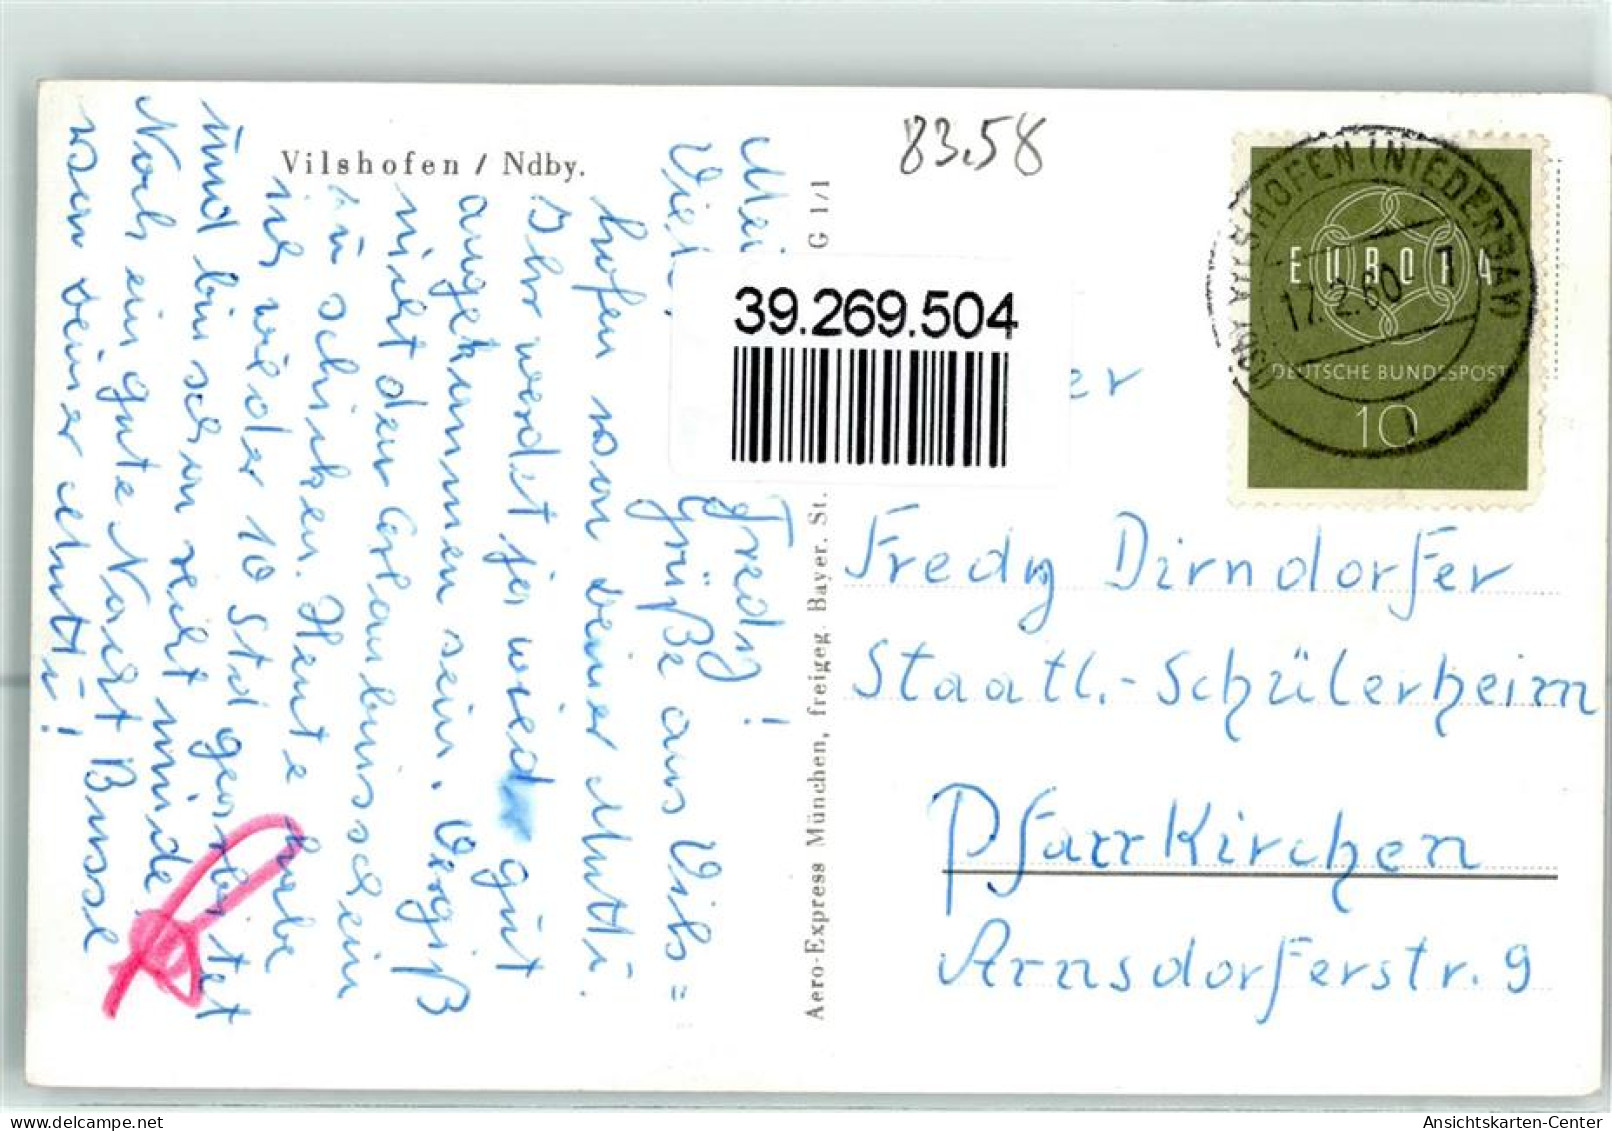 Vilshofen / Ndby.
83.58
Mei
Fredy!
Viel
Grüße aus Vils=
hofen von deiner Mutti.
Ihr werdet ja wied gut
angekummen sein. Vergiß
nicht den Erlaubnisschein
zu schicken. Heute habe
ich wieder 10 Std gearbeitet
und bin schon reicht müde
Noch ein gute Nacht Bussl
von deiner Mutti!
Aero-Express München, freigeg. Bayer. St.
G 1/1
39.269.504
VILSHOFEN (NIEDERBAY)
17.2.60
EUROPA
DEUTSCHE BUNDESPOST
10
er
Fredy Dirndorfer
Staatl.-Schülerheim
Pfarrkirchen
Arnsdorferstr. 9
oldthing.net
Ansichtskarten-Center